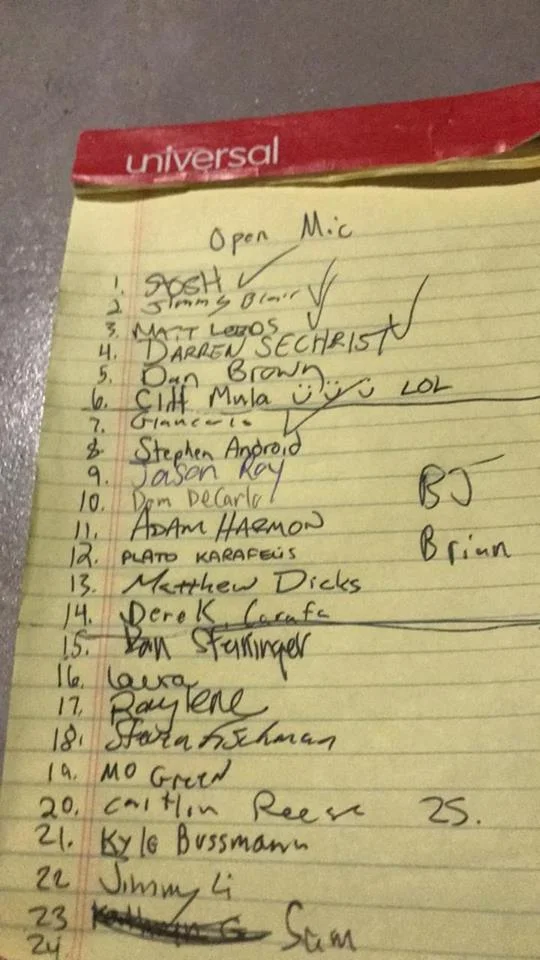 universal
Open Mic
1. SOSH
2. Jimmy Blair
3. MATT LEEDS
4. DARREN SECHRIST
5. Dan Brown
6. Cliff Mula LOL
7. Giancarlo
8. Stephen Android
9. Jason Roy
10. Dom DeCarlo
BJ
11. ADAM HARMON
Brian
12. PLATO KARAFELIS
13. Matthew Dicks
14. Derek Carafa
15. Dan
16. Laura
17. Raylene
18. Fischman
19. MO GREEN
20. Caitlin Reese 25.
21. Kyle Bussmann
22 Jimmy Li
23 Sam
24